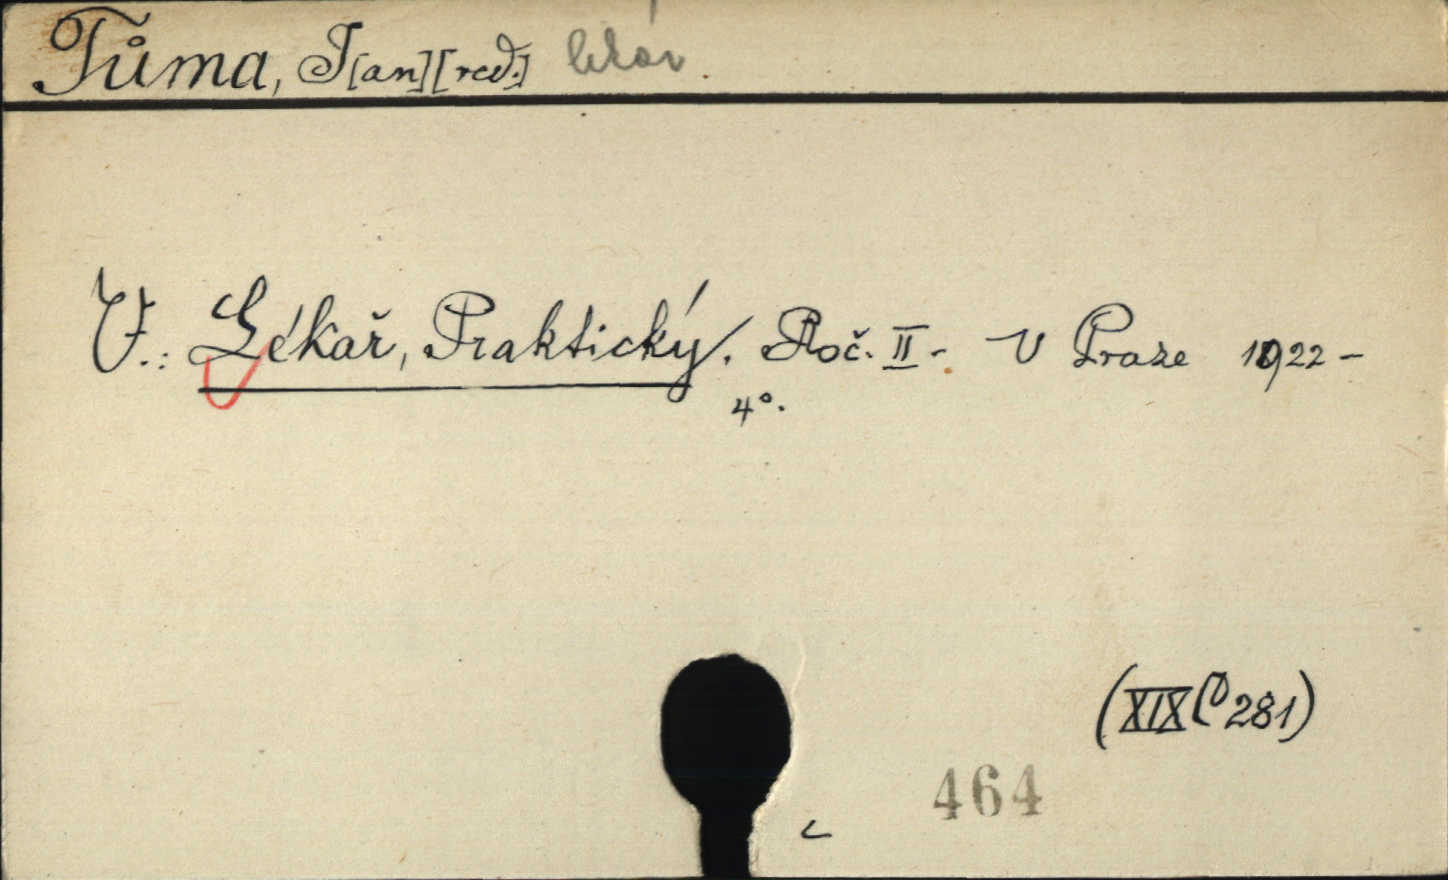 Tůma, J[an][red.] lékař
V.: Lékař, Praktický. Roč. II - V Praze 1922 -
4°.
(XIX C 281)
464